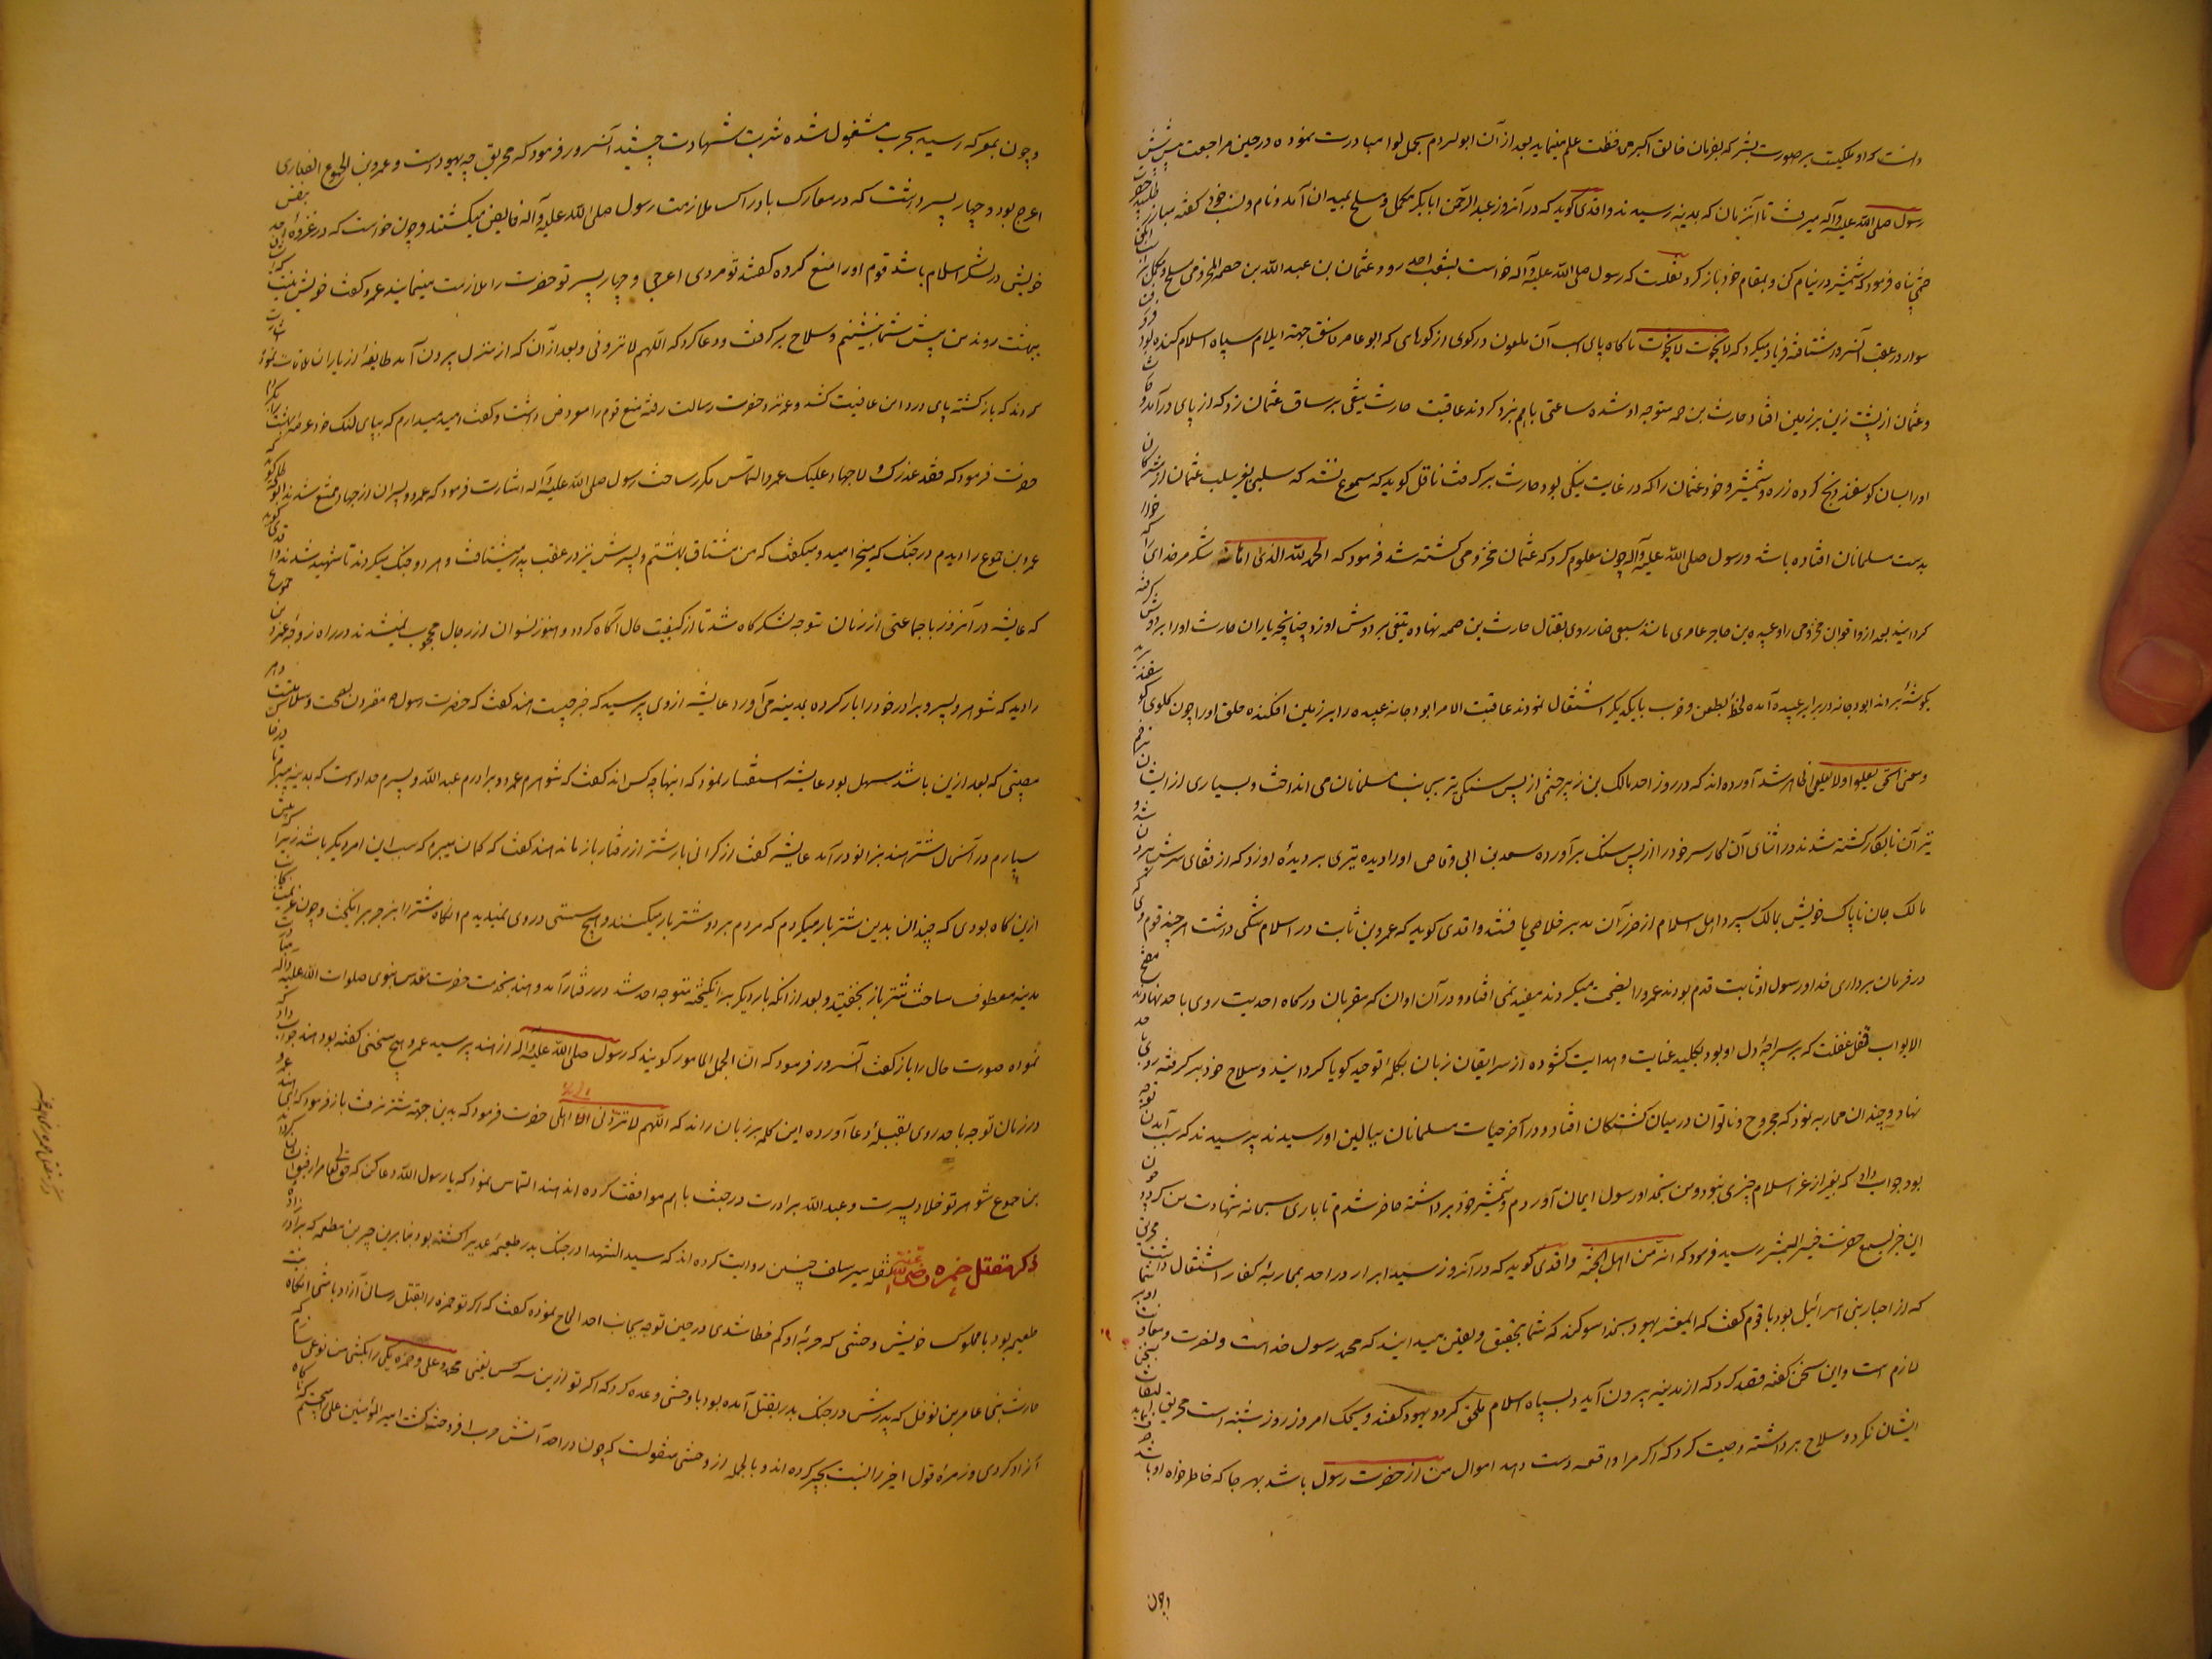 دانست که او ملکیست بر صورت بشر که بفرمان خالق اکبر محافظت علم مینماید بعد از آن ابوالروم بحمل لوا مبادرت نموده در حین مراجعت پیش پیش
رسول صلی الله علیه وآله میرفت تا آنزمان که بمدینه رسیدند واقدی گوید که در آنروز عبد الرحمن ابابکر مکمل و مسلح بمیدان آمد و نام و نسب خود گفته مبارز طلبید حضرت
پناه فرمود که شمشیر در نیام کن و بمقام خود باز گرد نقلست که رسول صلی الله علیه وآله خواست بشعب احد رود عثمان بن عبد الله بن المخزومی مسلح و مکمل بر
سوار در عقب آنسرور شتافته فریاد میکرد که لا نجوت لا نجوت ناگاه پای اسب آن ملعون در گوی از گوهای که ابو عامر فاسق جهة ایلام سپاه اسلام کنده بود
و عثمان از پشت زین بر زمین افتاد حارث بن صمه متوجه او شده ساعتی با هم نبرد کردند عاقبت حارث تیغی بر ساق عثمان زد که از پای درآمد و
او را بسان گوسفند ذبح کرده زره و شمشیر و خود عثمان را که در غایت نیکی بود حارث برگرفت ناقل گوید که مسموع نشد که سلبی بغیر سلب عثمان از مشرکان
بدست مسلمانان افتاده باشد و رسول صلی الله علیه وآله چون معلوم کرد که عثمان مخزومی کشته شد فرمود که الحمد لله الذی اماته شکر مر خدای را که
گردانید بعد از واقوان مخزومی را و عبیده بن حاجز عامری مانند سبعی ضار روی بقتال حارث بن صمه نهاده تیغی بر دوش او زد چنانچه یاران حارث او را بر دوش گرفته
بگوشه بردند ابو دجانه در برابر عبیده آمده لحظه بطعن و ضرب با یکدیگر اشتغال نمودند عاقبت الامر ابو دجانه عبیده را بر زمین افکنده حلق او را چون گلوی گوسفند برید
و معنی الحق یعلو و لا یعلی ظاهر شد آورده اند که در روز احد مالک بن زهیر جشمی از پس سنگی تیر بجانب مسلمانان می انداخت و بسیاری از ایشان بزخم
تیر آن نابکار کشته شدند در اثنای آن کار سر خود را از پس سنگ برآورده سعد بن ابی وقاص او را دیده تیری بر دیده او زد که از قفای سرش بیرون شد و
مالک جان ناپاک خویش بمالک سپرد اهل اسلام از ضرر آن مدبر خلاصی یافتند واقدی گوید که عمرو بن ثابت در اسلام شکی داشت هر چند قوم وی که
در فرمان برداری خدا و رسول او ثابت قدم بودند عمرو را نصیحت میکردند مفید نمی افتاد و در آن اوان که مقربان درگاه احدیت روی باحد نهادند مفتح
الابواب قفل غفلت که بر سراچه دل او بود بکلید عنایت و هدایت گشوده از سر ایقان زبان بکلمه توحید گویا گردانید و سلاح خود بر گرفته روی باحد
نهاد و چندان محاربه نمود که مجروح و ناتوان در میان کشتگان افتاد و در آخر حیات مسلمانان ببالین او رسیدند پرسیدند که سبب آمدن توچه
بود جواب داد که بغیر از عز اسلام چیزی نبود و من بخدا و رسول ایمان آوردم و شمشیر خود برداشته حاضر شدم تا باری سبحانه شهادت من کردد چون
این خبر بسمع حضرت خیر البشر رسید فرمود که انه من اهل الجنة واقدی گوید که در آنروز سید ابرار در احد بمحاربه کفار اشتغال داشت مخریق
که از احبار بنی اسرائیل بود با قوم گفت که ای معشر یهود بخدا سوگند که شما بتحقیق و یقین میدانید که محمد رسول خداست و نصرت و معاونت او بر شما
لازم است و این سخن گفته قصد کرد که از مدینه بیرون آید و بسپاه اسلام ملحق گردد یهود گفتند ویحک امروز روز شنبه است مخریق بسخن
ایشان نکرد و سلاح برداشته وصیت کرد که اگر مرا واقعه دست دهد اموال من از حضرت رسول باشد بهر جا که خاطر خواه او باشد
و چون بمعرکه رسید بحرب مشغول شده شربت شهادت چشید آنسرور فرمود که مخریق خیر یهودست و عمرو بن الجموع انصاری
اعرج بود و چهار پسر داشت که در معارک بادراک ملازمت رسول صلی الله علیه وآله فایض میگشتند و چون خواست که در غزوه احد بنفس
خویش در لشکر اسلام باشد قوم او را منع کرده گفتند تو مردی اعرجی و چهار پسر تو حضرت را ملازمت مینمایند عمرو گفت خویش نیست که ایشان
ببهشت روند من پیش شما بنشینم و سلاح برگرفت و دعا کرد که اللهم لا تردنی و بعد از آن که از منزل بیرون آمد طایفه از یاران
کردند که بازگشته پای در دامن عافیت کشد و عمرو نزد حضرت رسالت رفته منع قوم را معروض داشت و گفت امید میدارم که بپای لنگ خود عرصه بهشت
حضرت فرمود که فقد عذرک الله و لا جهاد علیک عمرو التماس مکرر ساخت رسول صلی الله علیه وآله اشارت فرمود که عمرو و پسران از جهاد ممتنع نشوند ابو طلحه گوید که
عمرو بن جموع را دیدم در جنگ که میخرامید و میگفت که من مشتاق بهشتم و پسرش نیز در عقب پدر میشتافت و هر دو جنگ میکردند تا شهید شدند واقدی گوید
که عایشه در آنروز با جماعتی از زنان متوجه لشکرگاه شد تا از کیفیت حال آگاه گردد و هنوز نسوان از رجال محجوب نمیشدند در راه زوجه عمرو بن جموع
را دید که شوهر و پسر و برادر خود را بار کرده بمدینه می آورد عایشه از وی پرسید که خبر چیست هند گفت که حضرت رسول مقرون بصحت و سلامتست و هر
مصیبتی که بعد ازین باشد سهل بود عایشه استفسار نمود که اینها چه کس اند گفت که شوهرم عمرو و برادرم عبد الله و پسرم خلادست که بمدینه میبرم تا
بسپارم در آنحال شتر هند بزانو درآمد عایشه گفت از گرانی بار شتر از رفتار باز ماند هند گفت که گمان میبرم که سبب این امر دیگر باشد زیرا که پیش
ازین گاه بودی که چندان بدین شتر بار میکردم که مردم بر دو شتر بار میکنند و هیچ سستی در وی نمیدیدم آنگاه شتر را بزجر برانگیخت و چون
مدینه معطوف ساخت شتر باز بخفتید و بعد از آنکه بار دیگر برانگیخته متوجه احد شد در رفتار آمد و هند بخدمت حضرت مقدس نبوی صلوات الله علیه وآله
نموده صورت حال را باز گفت آنسرور فرمود که ان الجمل لمامور گویند که رسول صلی الله علیه وآله از هند پرسید عمرو هیچ سخنی گفته بود هند جواب داد که
در زمان توجه باحد روی بقبله دعا آورده این کلمه بر زبان راند که اللهم لا تردنی الی اهلی حضرت فرمود که بدین جهة شتر نرفت باز فرمود که ای هند عمرو
بن جموع شوهر تو خلاد پسرت و عبد الله برادرت در جنت با هم موافقت کرده اند هند التماس نمود که یا رسول الله دعا کن که حق تعالی مرا رفیق ایشان گرداند
ذکر مقتل حمزه رضی الله عنه نقله سیر سلف چنین روایت کرده اند که سید الشهدا در جنگ بدر طعیمه عدی را کشته بود بنابرین جبیر بن مطعم که برادر زاده
طعیمه بود با مملوک خویش وحشی که حربه او کم خطا شدی در حین توجه بجانب احد الحاح نموده گفت که اگر تو حمزه را بقتل رسانی آزاد باشی آنگاه
حارث بنی عامر بن نوفل که پدرش در جنگ بدر بقتل آمده بود با وحشی وعده کرد که اگر تو ازین سه کس یعنی محمد و علی و حمزه یکی را بکشی من ترا
آزاد کردی و زمره قول اخیر را نسبت بجبیر کرده اند و بالجمله از وحشی منقولست که چون در احد آتش حرب افروخته گشت امیر المؤمنین علی
وچون